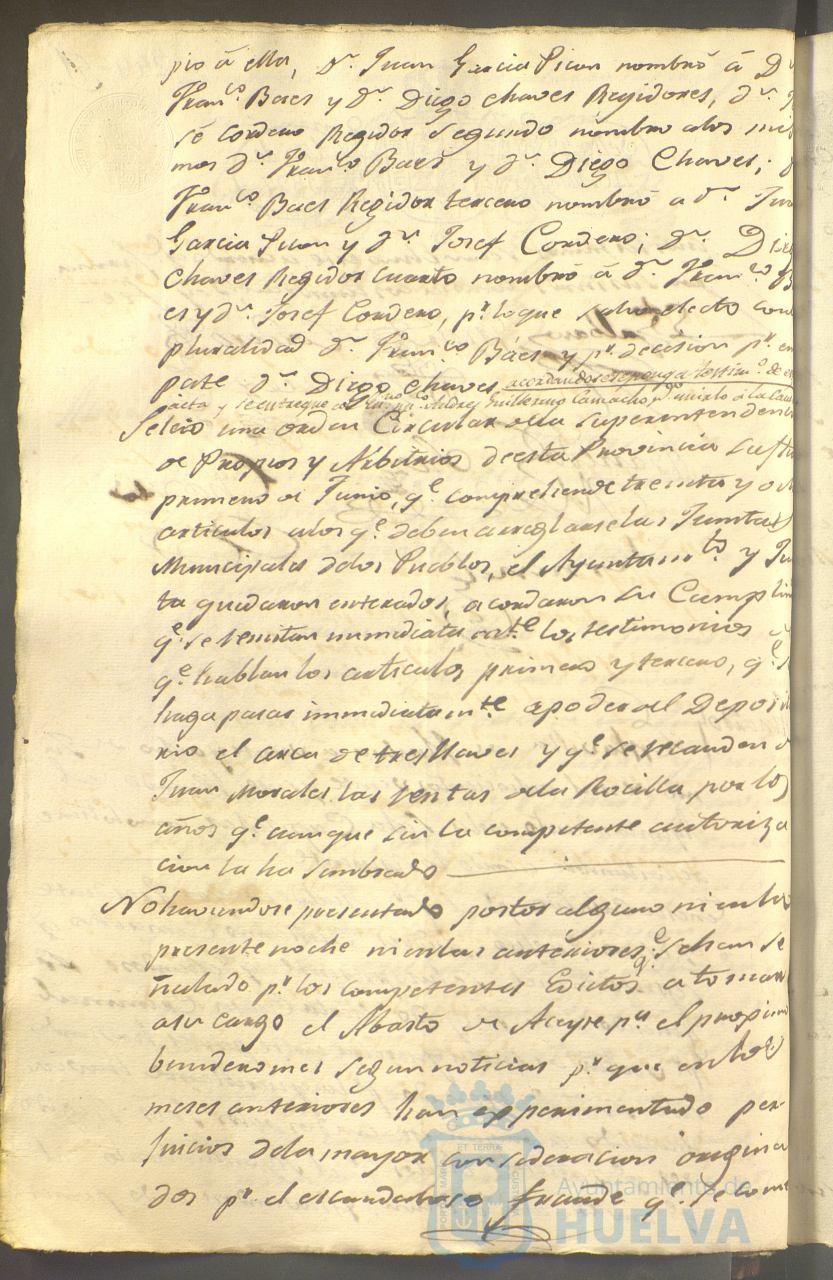 pio á ella, Dn. Juan Garcia Picon nombró á D
Franco. Baes y Dn. Diego Chaves Regidores, Dn. J
sé Cordero Regidor Segundo nombró a los mis
mos Dn. Franco. Baes y Dn. Diego Chaves;
Franco. Baes Regidor tercero nombró a Dn. Jua
Garcia Picon y Dn. Josef Cordero; Dn. Die
Chaves Regidor Cuarto nombró á Dn. Franco. B
es y Dn. Josef Cordero, pr. lo que salio electo con
pluralidad Dn. Franco. Báes y pr. decision pr. em
pate Dn. Diego Chaves acordandose se ponga testimo. de es
acta y se entregue al Andres Guillermo Camacho, pa. unirlo a la
Se leio una orden Circular de la Superintendenc
de Propios y Arbitrios de esta Provincia su fha
primero de Junio, qe. comprehende treinta y o
articulos a los qe. deben arreglarse las Juntas
Municipales de los Pueblos, el Ayuntamto. y Jun
ta quedaron enterados, acordaron su Cumplim
qe. se remitan inmediatamte. los testimonios
qe. hablan los articulos primero y tercero, qe. s
haga pasar inmediatamte. a poder del Deposi
rio el arca de tres llaves y qe. se recauden
Juan Morales las rentas de la Rocilla por los
años qe. aunque sin la competente autoriza
cion la ha sembrado
No haviendose presentado postor alguno ni en la
presente noche ni en las anteriores qe. se han se
ñalado pr. los competentes Edictos a tomar
a su cargo el Abasto de Aceyte pa. el proximo
benidero mes segun noticias pr. que en los
meses anteriores han experimentado per-
juicios de la mayor consideracion origina
dos pr. el escandaloso fraude qe. se come
Ayuntamiento de
HUELVA